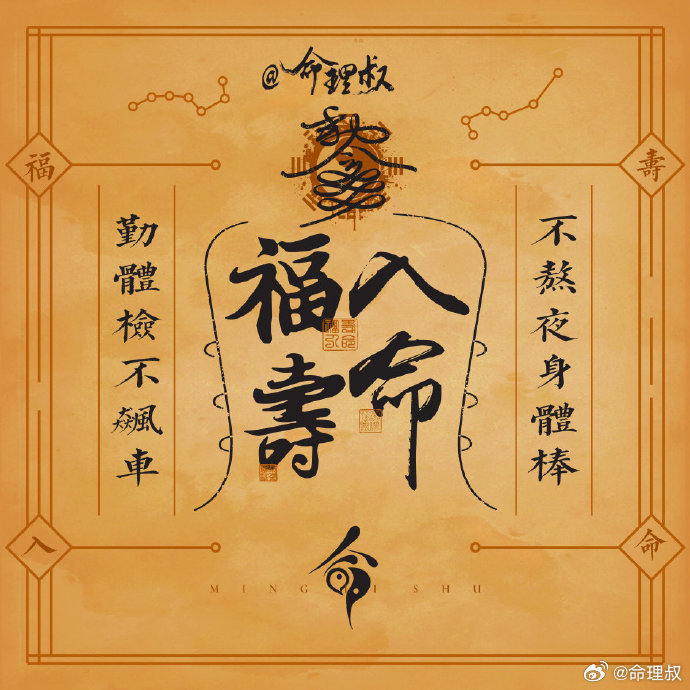 @命理叔
福
壽
不熬夜身體棒
入命
福壽
勤體檢不飆車
入
命
MING LI SHU
@命理叔